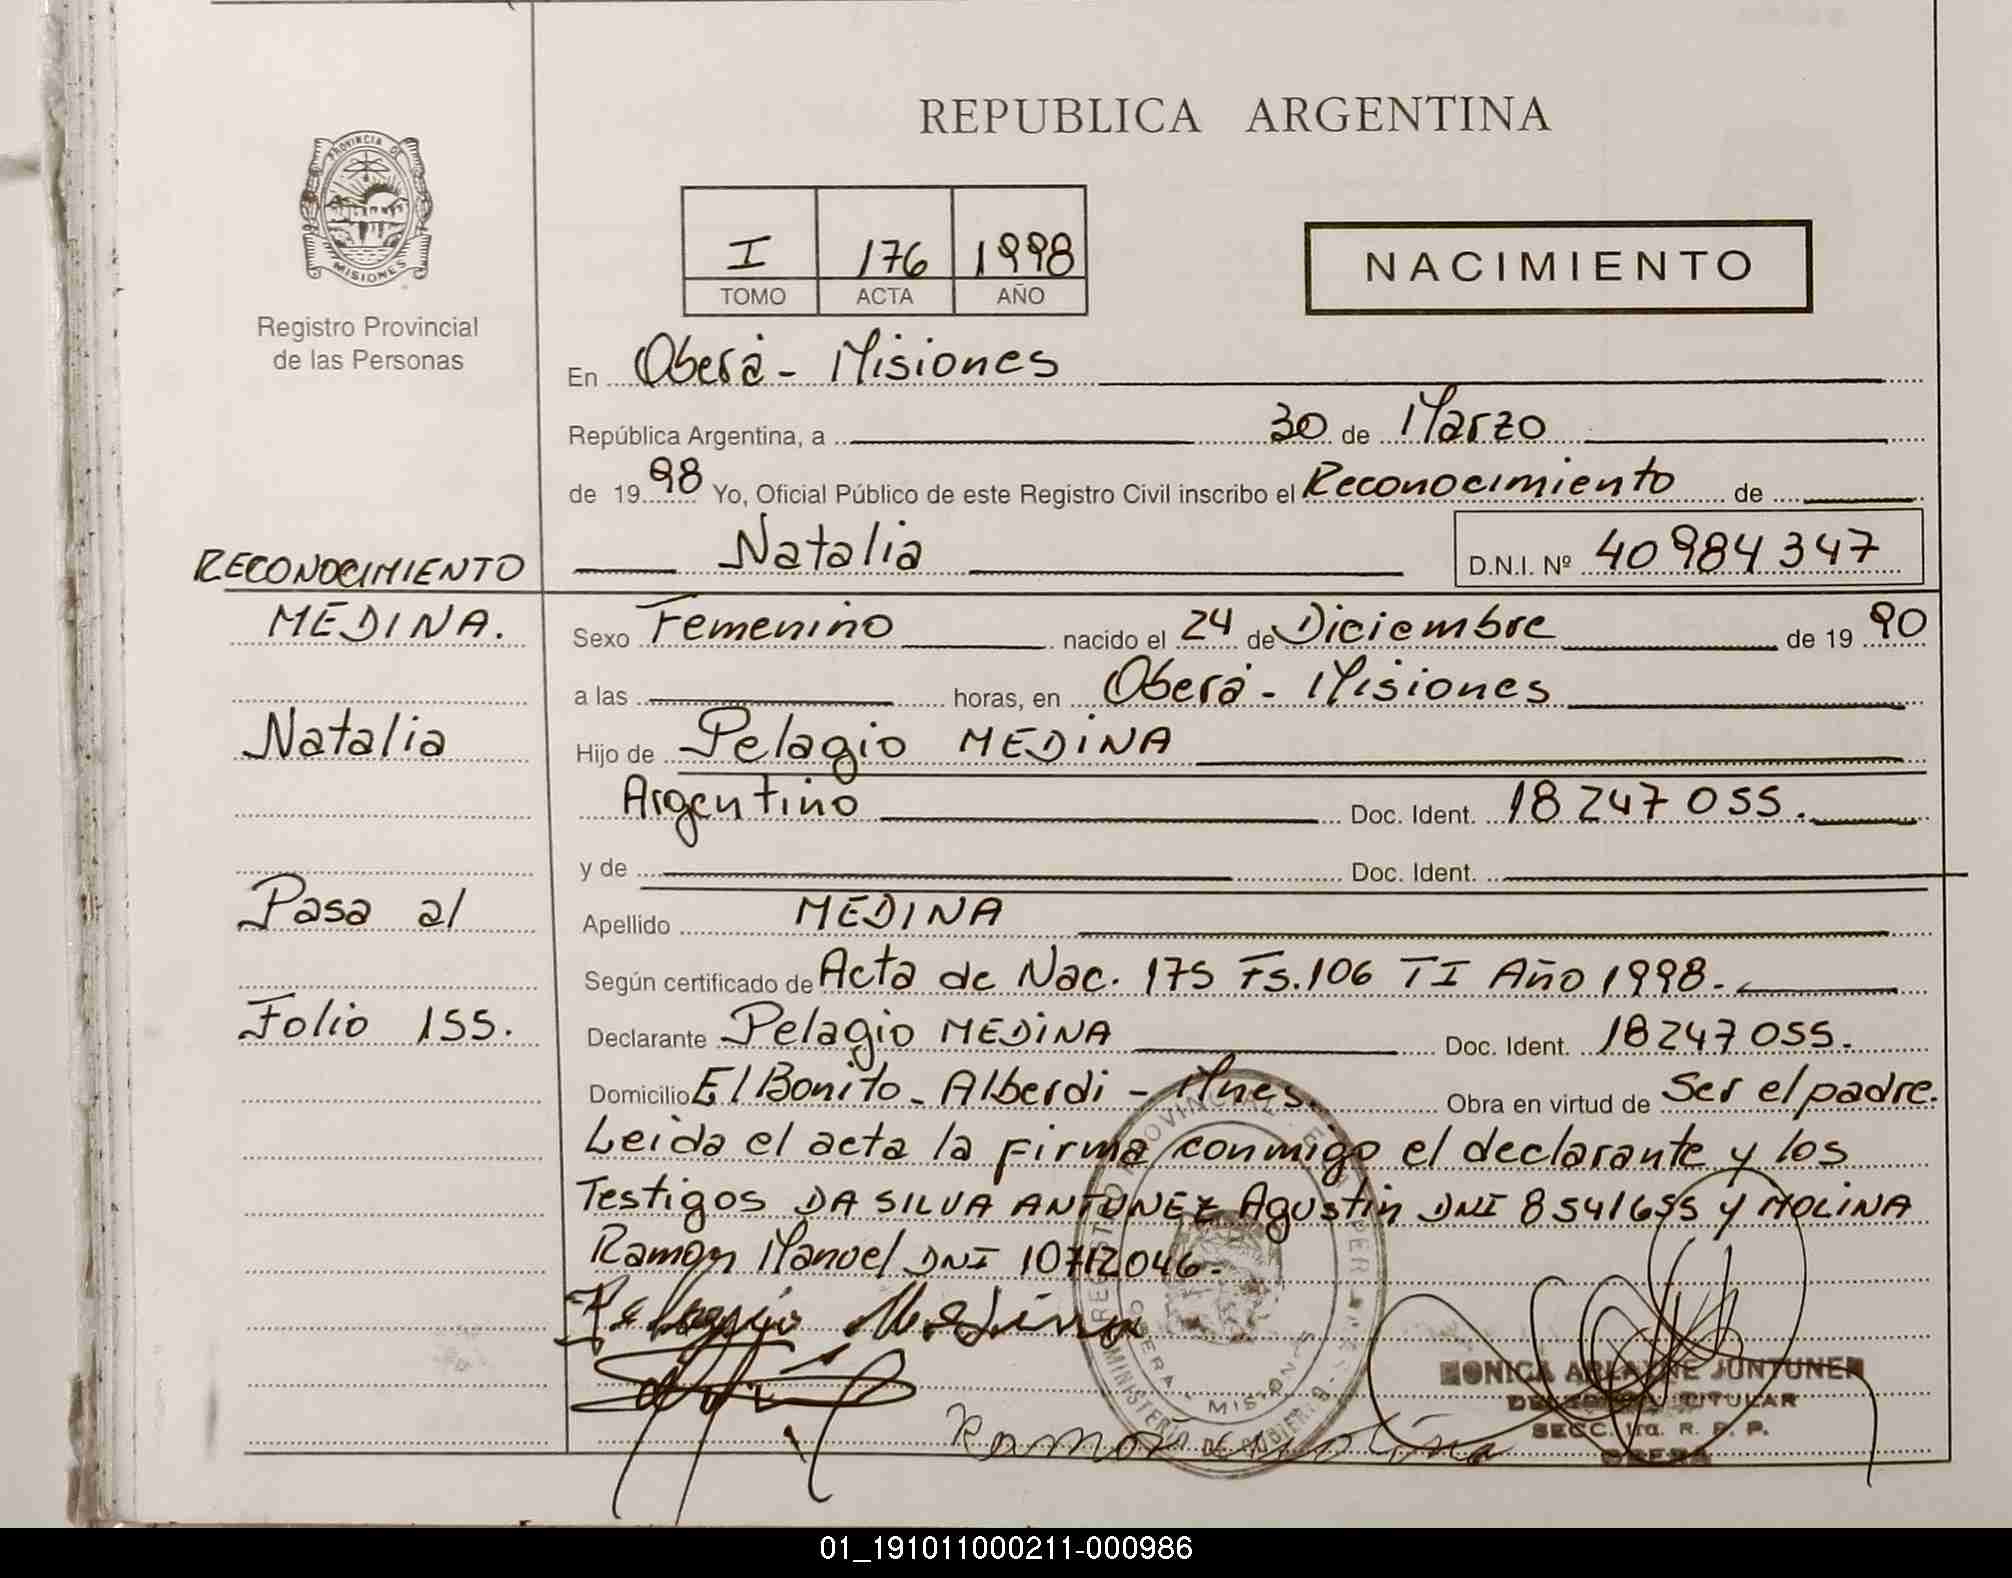 REPUBLICA ARGENTINA
PROVINCIA DE
MISIONES
Registro Provincial
de las Personas
I 176 1998
TOMO ACTA AÑO
NACIMIENTO
En Oberá - Misiones
República Argentina, a 30 de Marzo
de 1998 Yo, Oficial Público de este Registro Civil inscribo el Reconocimiento de
Natalia D.N.I. Nº 40984347
RECONOCIMIENTO
MEDINA.
Natalia
Pasa al
Folio 155.
Sexo Femenino nacido el 24 de Diciembre de 1990
a las horas, en Oberá - Misiones
Hijo de Pelagio MEDINA
Argentino Doc. Ident. 18247055.
y de Doc. Ident.
Apellido MEDINA
Según certificado de Acta de Nac. 175 Fs.106 TI Año 1998.
Declarante Pelagio MEDINA Doc. Ident. 18247055.
Domicilio El Bonito - Alberdi - Mnes. Obra en virtud de Ser el padre.
Leida el acta la firma conmigo el declarante y los
Testigos DA SILVA ANTUNEZ Agustin DNI 8541655 y MOLINA
Ramon Manuel DNI 10712046.
Pelagio Medina
MONICA ARLAYNE JUNTUNEN
TITULAR
SECC. 1ra. R. P. P.
OBERA
Ramon Molina
MISIONES
01_191011000211-000986